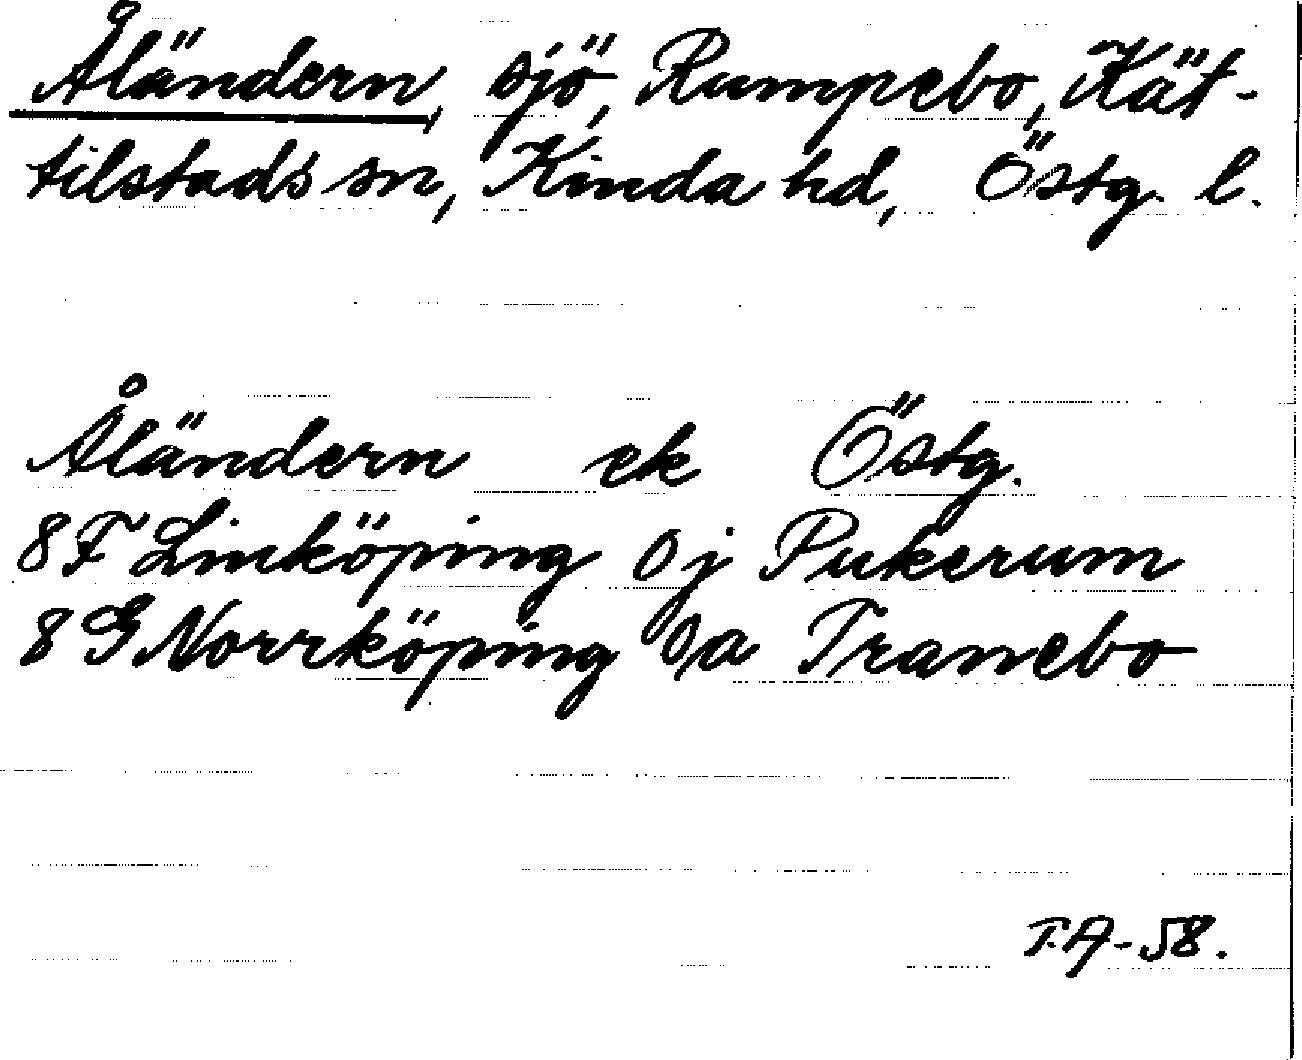 Åländern, sjö, Rumpebo, Kät-
tilstads sn, Kinda hd, Östg. l.
Åländern ek Östg.
8F Linköping 0j Pukerum
8G Norrköping 0a Tranebo
T.A-58.